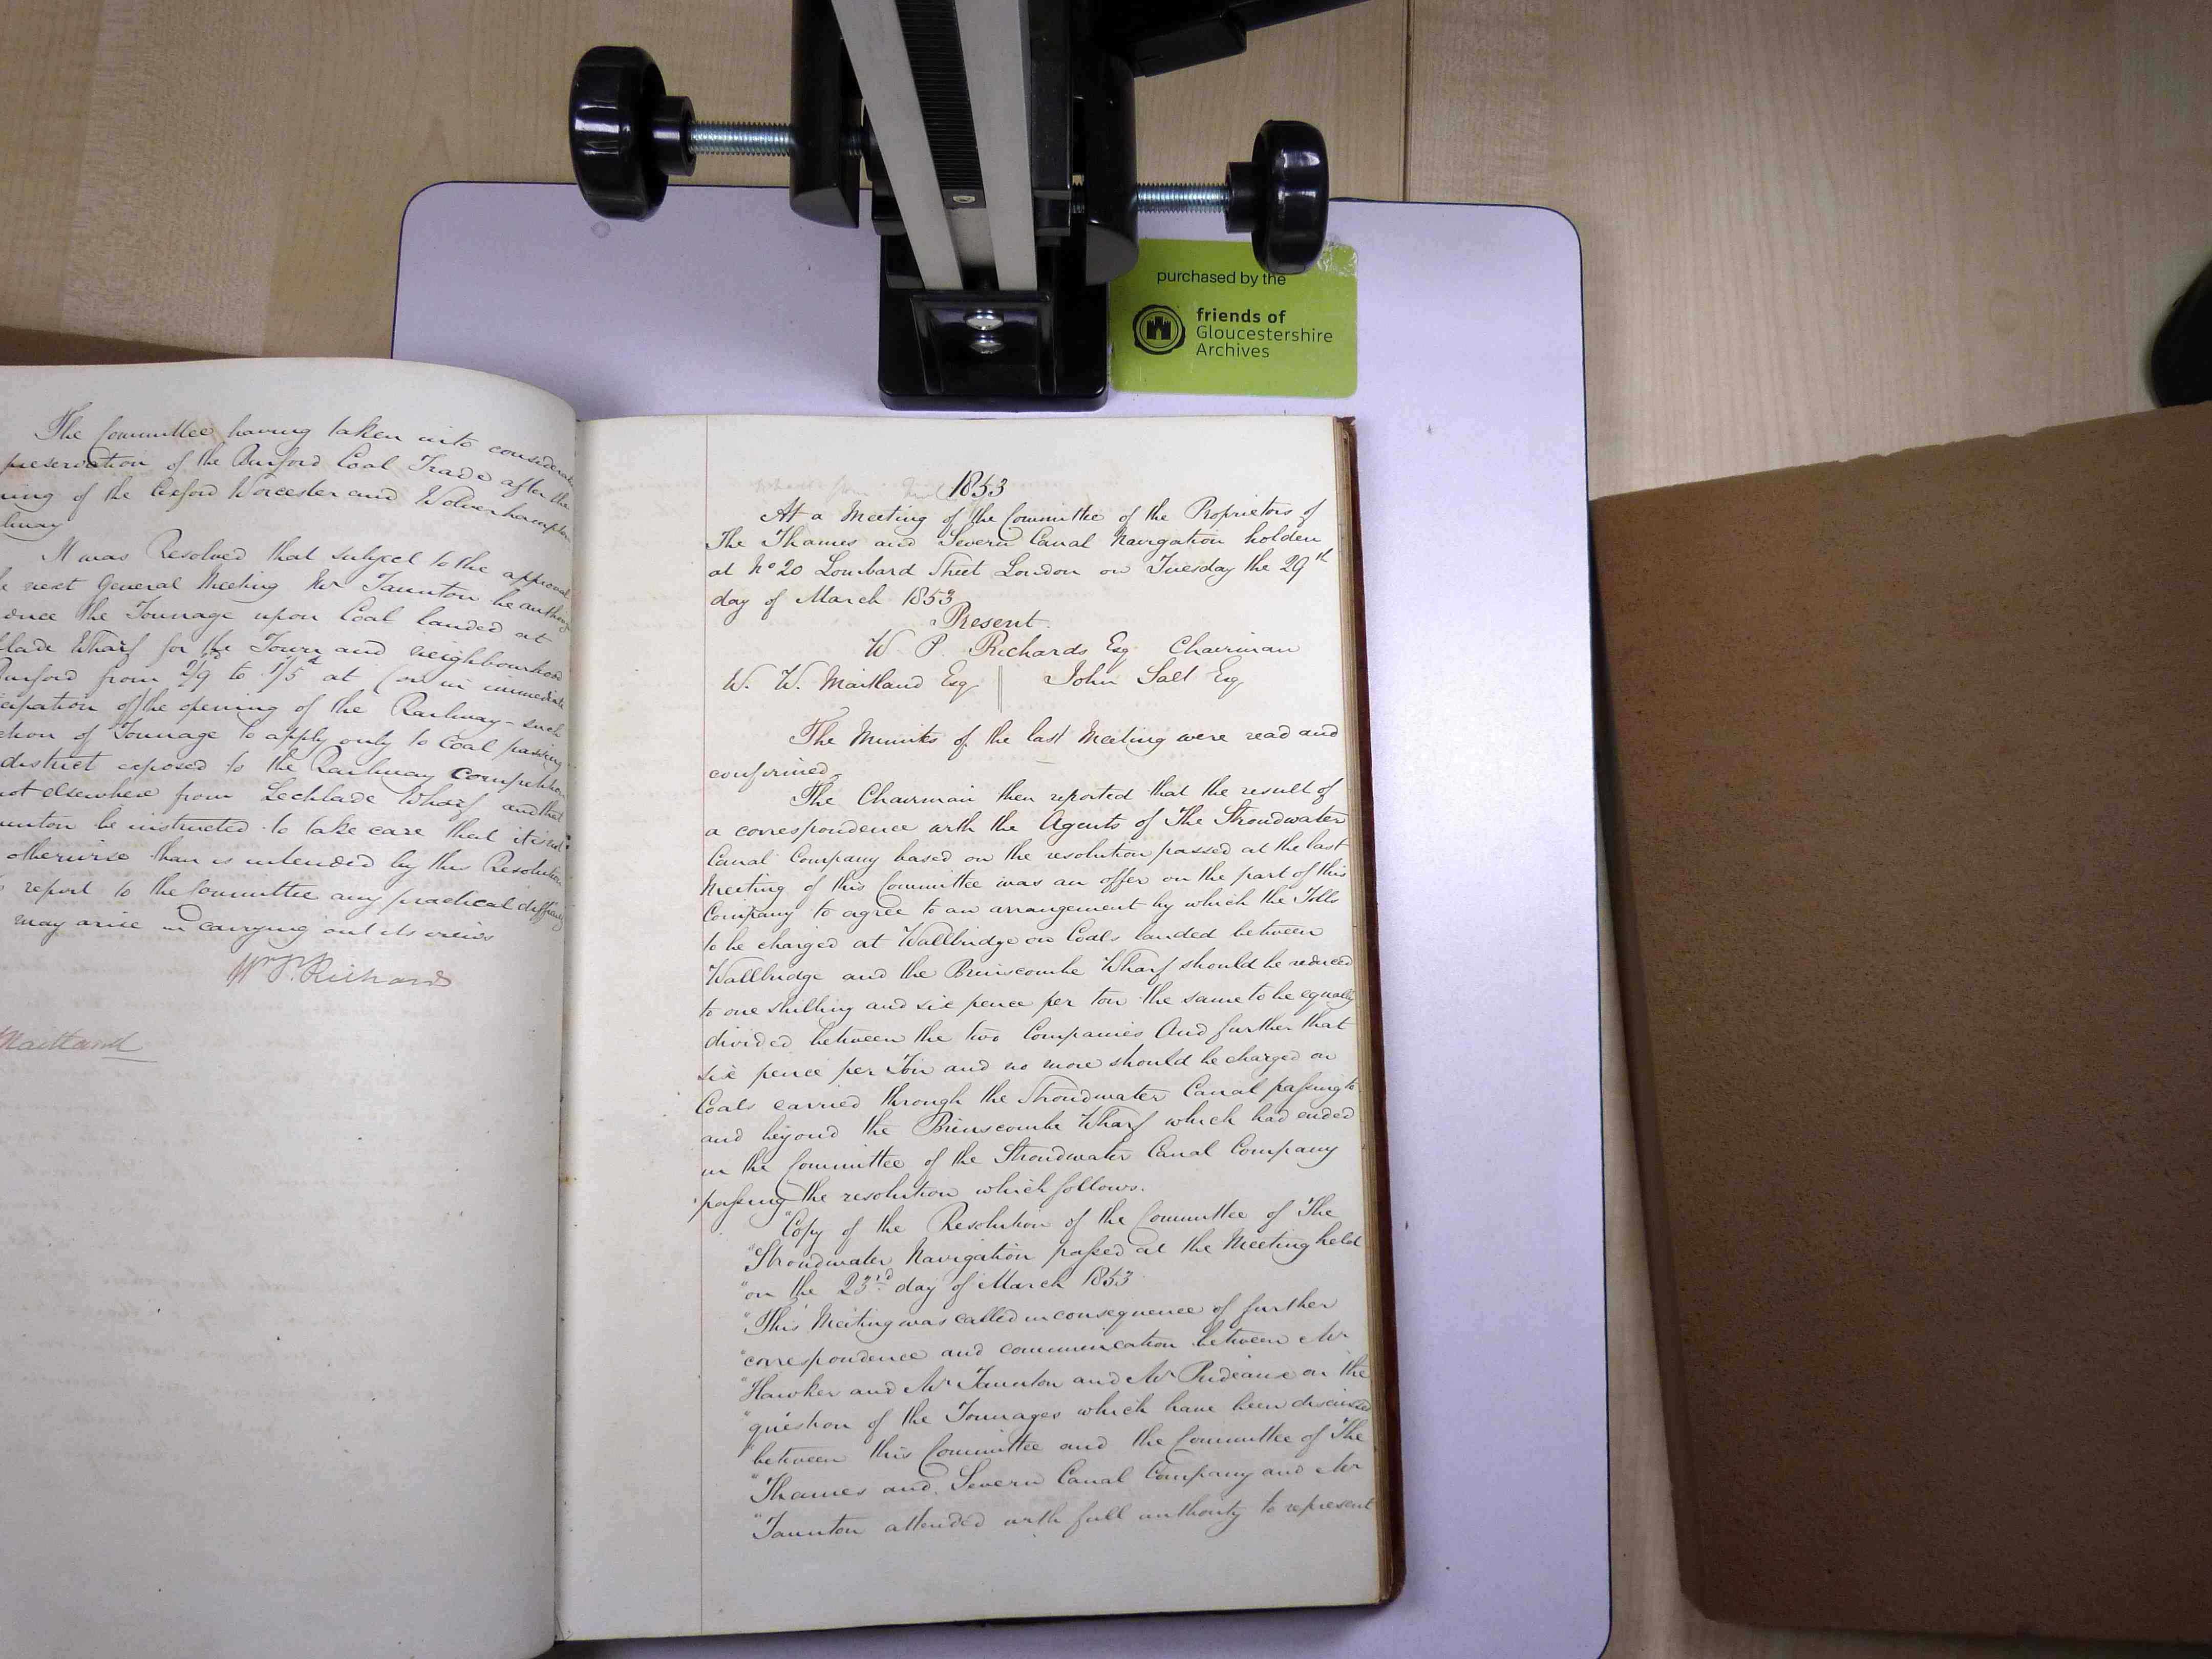 purchased by the
friends of
Gloucestershire
Archives
The Committee having taken into consideration
preservation of the Burford Coal Trade after the
ning of the Oxford Worcester and Wolverhampton
lway
It was Resolved that subject to the approval
next General Meeting Mr Taunton be authorize
duce the Tonnage upon Coal landed at
lade Wharf for the Town and neighbourhood
Burford from 2/9d to 1/5d at (or in immediate
cipation of) the opening of the Railway - such
ction of Tonnage to apply only to Coal passing
district exposed to the Railway Competition
not elsewhere from Lechlade Wharf and that
unton be instructed to take care that it is not
otherwise than is intended by this Resolution
report to the Committee any practical difficulty
may arise in carrying out its views
Wm P. Richards
Maitland
1853
At a Meeting of the Committee of the Proprietors of
The Thames and Severn Canal Navigation holden
at No 20 Lombard Street London on Tuesday the 29th
day of March 1853
Present
W. P. Richards Esq Chairman
W. W. Maitland Esq John Salt Esq
The Minutes of the last Meeting were read and
confirmed.
The Chairman then reported that the result of
a correspondence with the Agents of The Stroudwater
Canal Company based on the resolution passed at the last
Meeting of this Committee was an offer on the part of this
Company to agree to an arrangement by which the Tolls
to be charged at Wallbridge on Coals landed between
Wallbridge and the Brimscombe Wharf should be reduced
to one shilling and six pence per ton the same to be equally
divided between the two Companies And further that
six pence per Ton and no more should be charged on
Coals carried through the Stroudwater Canal passing to
and beyond the Brimscombe Wharf which had ended
in the Committee of the Stroudwater Canal Company
passing the resolution which follows.
"Copy of the Resolution of the Committee of The
"Stroudwater Navigation passed at the Meeting held
"on the 23rd day of March 1853
"This Meeting was called in consequence of further
"correspondence and communication between Mr
"Hawker and Mr Taunton and Mr Prideaux on the
"question of the Tonnages which have been discussed
"between this Committee and the Committee of The
"Thames and Severn Canal Company and Mr
"Taunton attended with full authority to represent